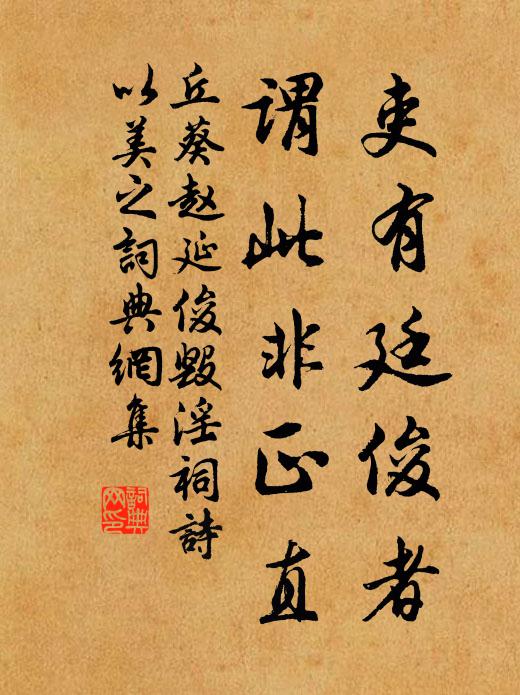 吏有廷俊者
謂此非正直
丘葵趙延俊毀淫祠詩
以美之詞典網集
詞典
網印